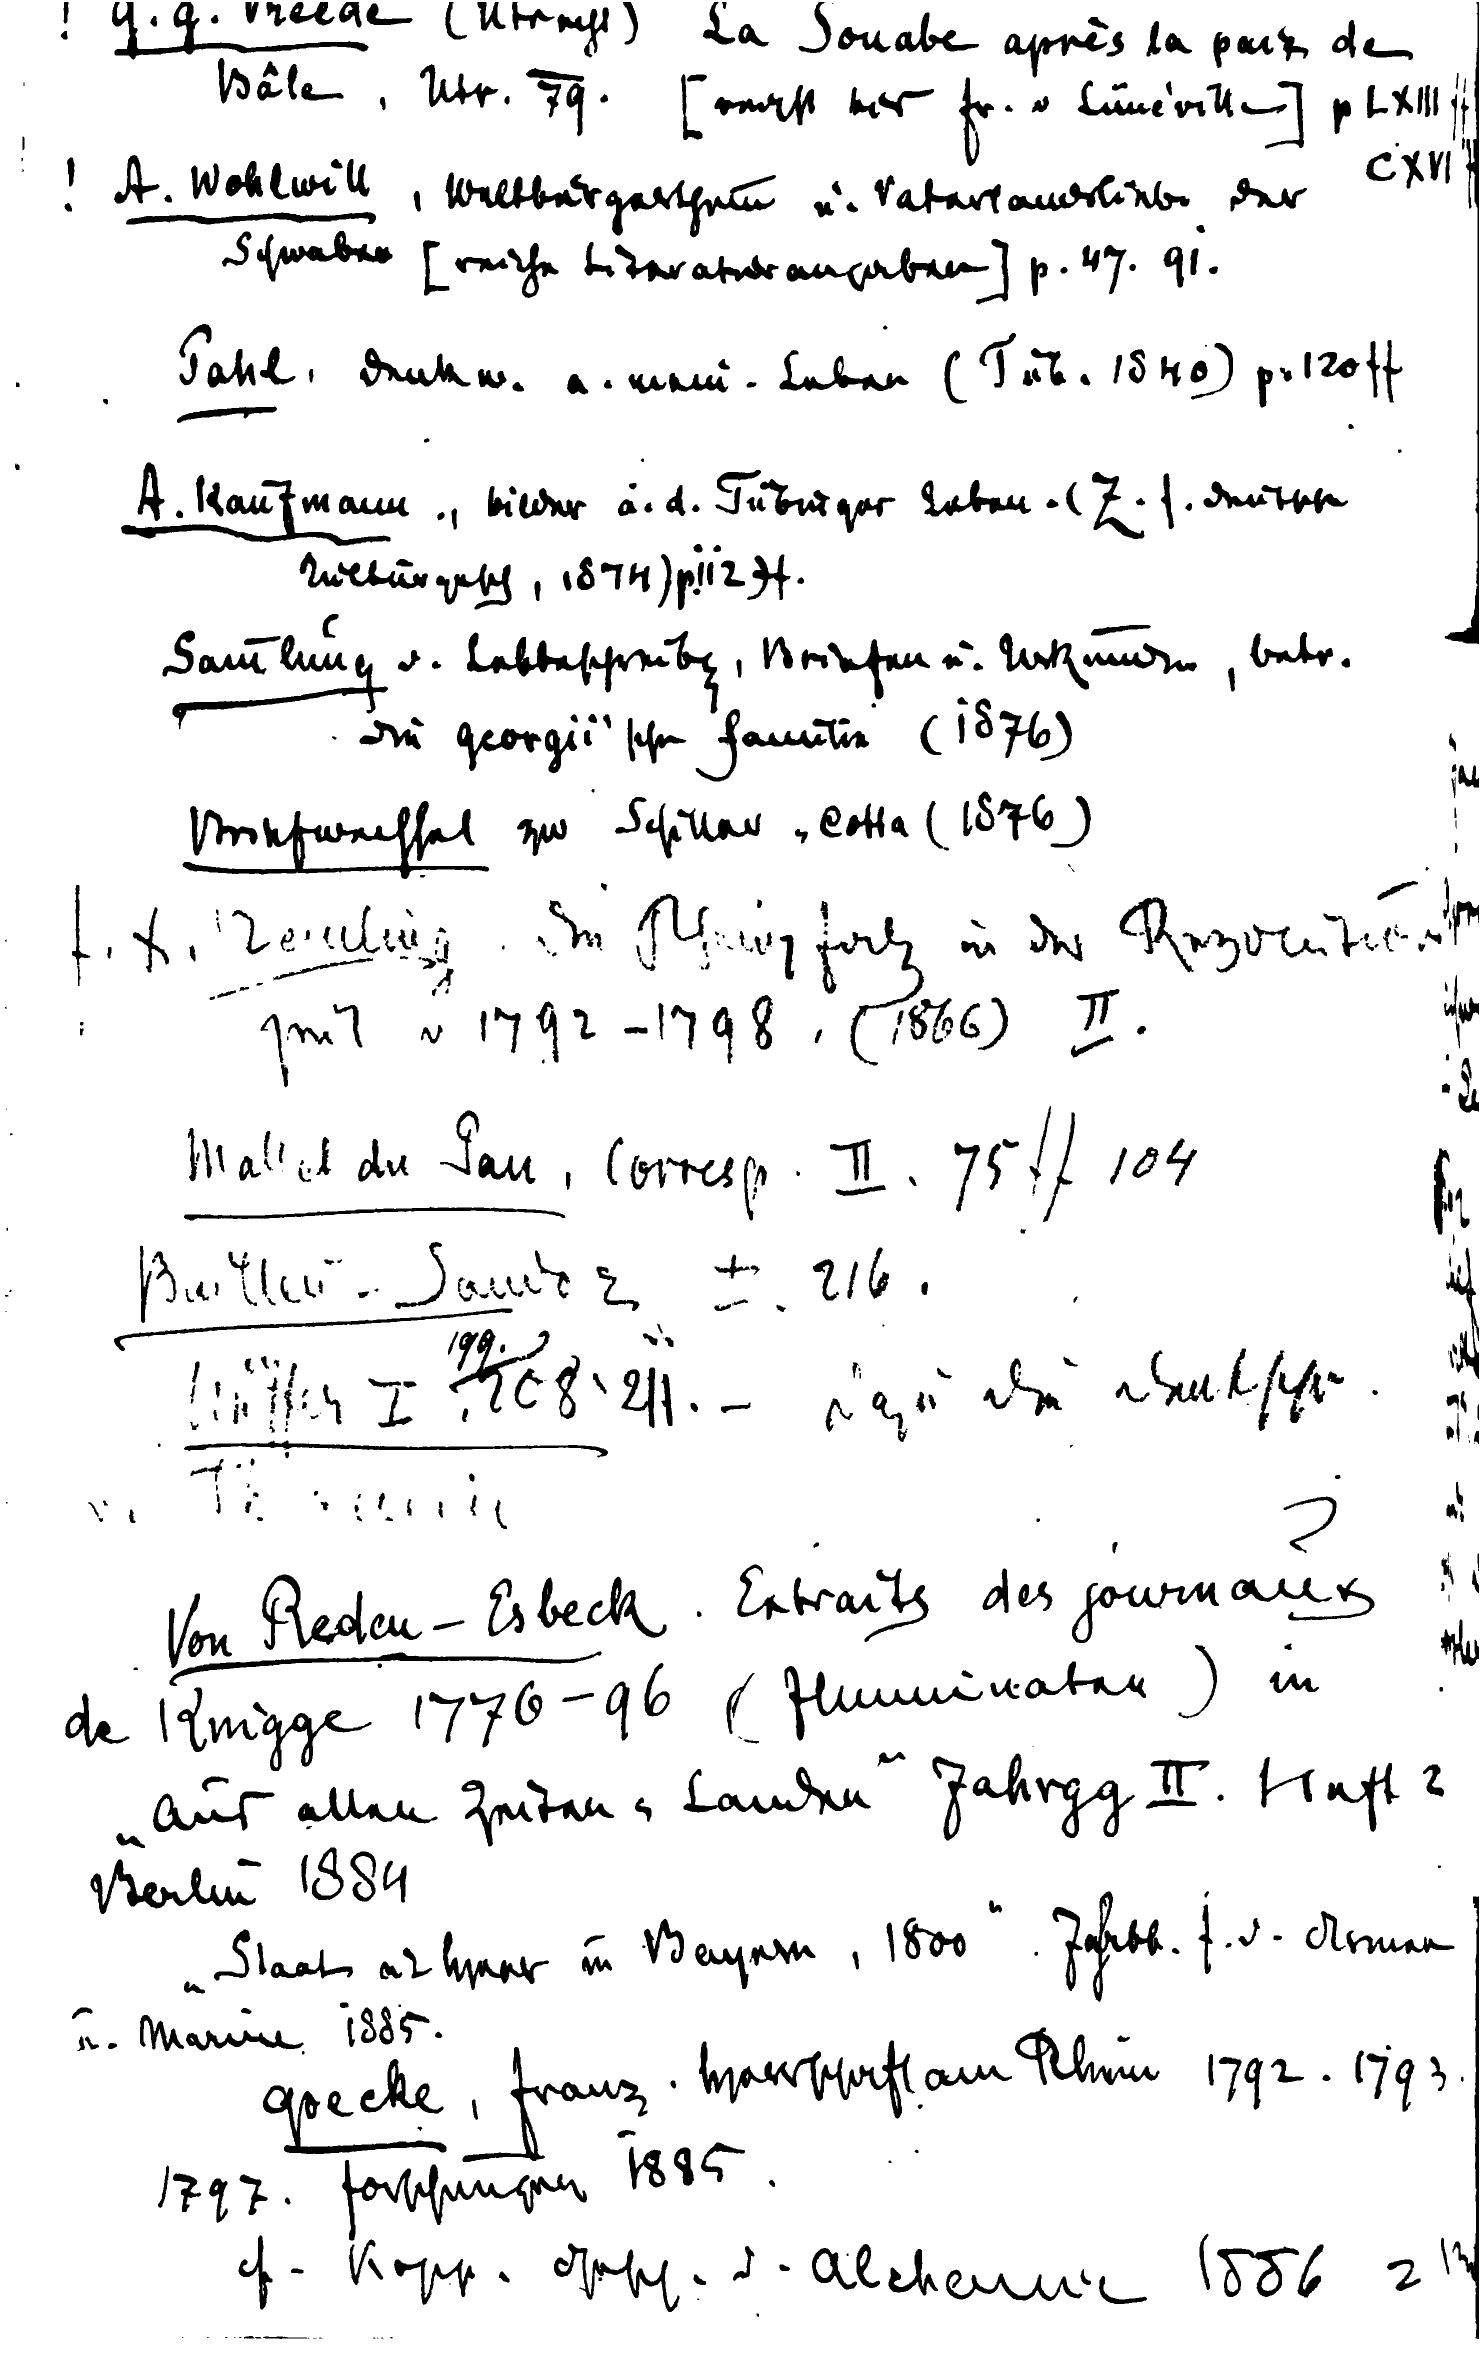 ! G. G. Vreede (Utrecht) La Souabe après la paix de
Bâle, Utr. 79. [reicht bis Fr. v Lunéville] p LXIII ff
CXVI ff
! A. Wohlwill, Weltbürgerthum u. Vaterlandsliebe der
Schwaben [reiche Literaturangaben] p. 47. 91.
Pahl, Denkw. a. mein. Leben (Tüb. 1840) p. 120 ff
A. Kaufmann, Bilder a. d. Tübinger Leben. (Z. f. deutsche
Kulturgesch, 1874) p. 112 ff.
Samlung v. Lebbeschreibg, Briefen u. Urkunden, betr.
die Georgii'sche Familie (1876)
Briefwechsel zw Schiller u Cotta (1876)
F. X. Remling. Die Rheinpfalz in der Revolutions
zeit v 1792-1798. (1866) II.
Mallet du Pan, Corresp. II. 75 ff 104
Bailleu - Sandoz I. 216.
Hüffer I 199. 208. 211. - die deutsche
Von Reden-Esbeck. Extraits des journaux
de Knigge 1776-96 (Illuminaten) in
„Aus allen Zeiten u Landen“ Jahrgg II. Heft 2
Berlin 1884
„Staat u Heer in Bayern, 1800“. Jahrbb. f. d. Armee
u. Marine 1885.
Goecke, Franz. Herrschaft am Rhein 1792. 1793.
1797. Forschungen 1885.
cf. Kopp. Gesch. d. Alchemie 1886 2